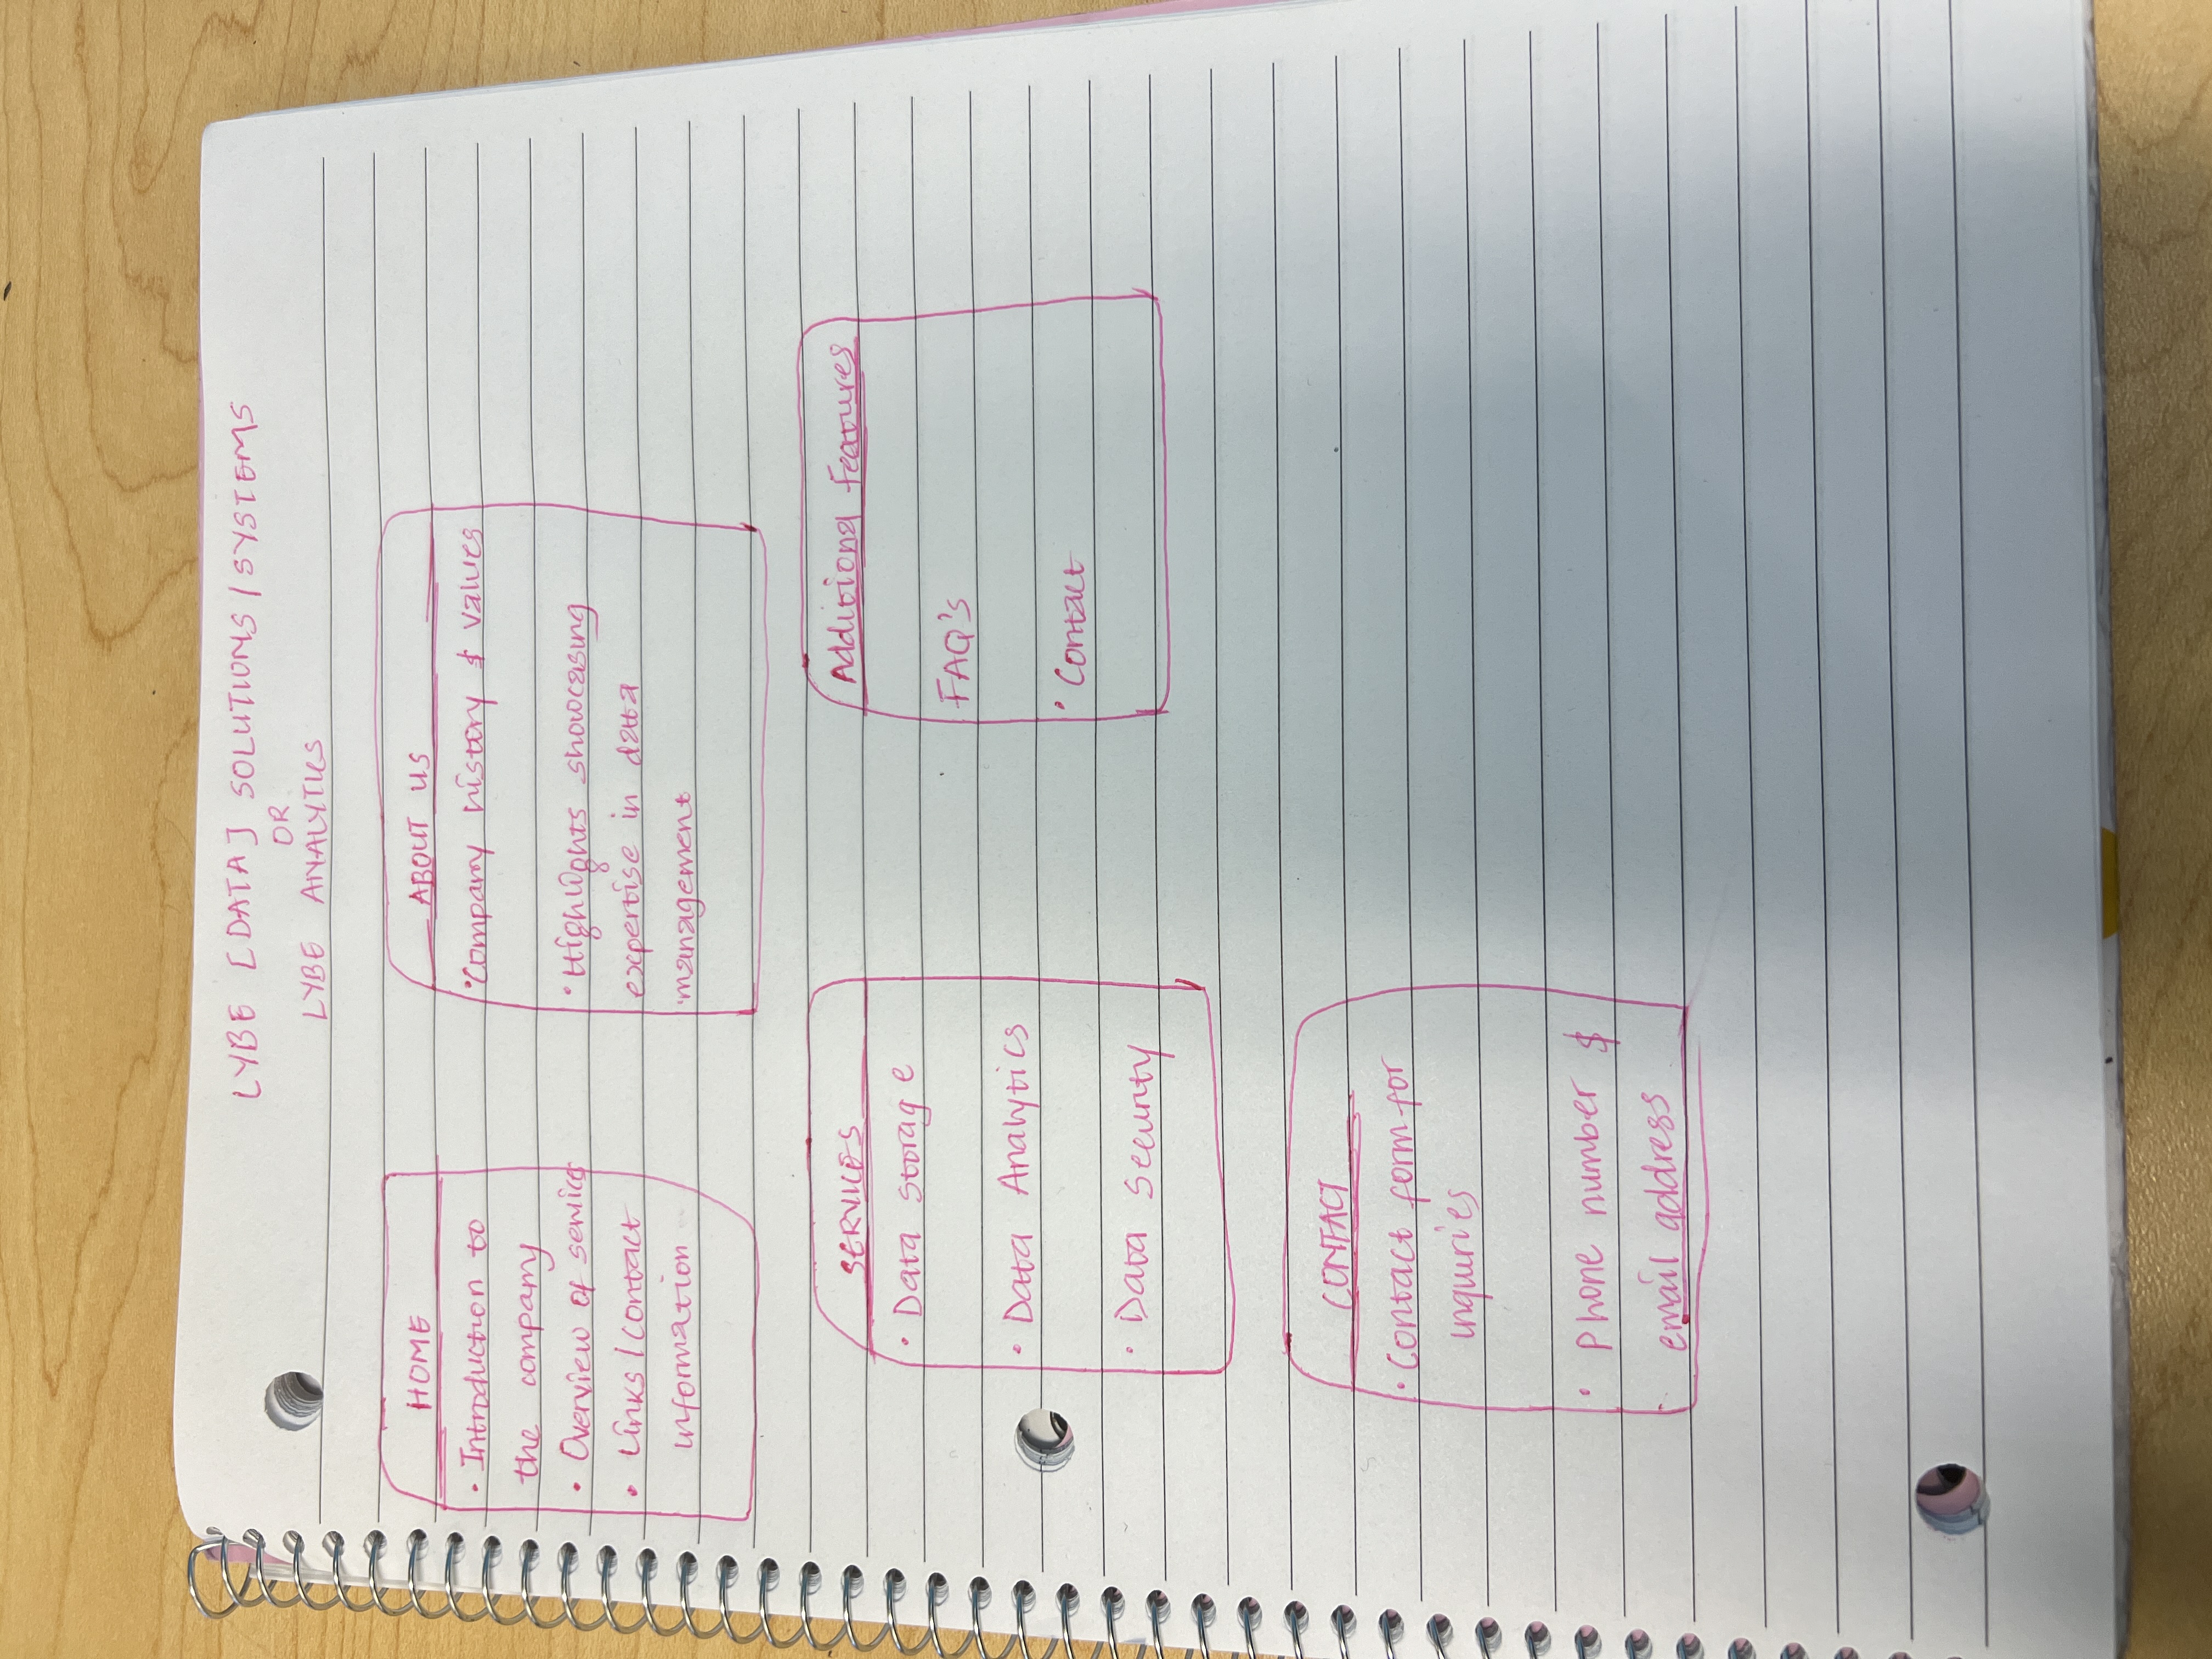 LYBE [DATA] SOLUTIONS / SYSTEMS
OR
LYBE ANALYTICS
HOME
• Introduction to
the company
• Overview of service
• Links / contact
information
ABOUT US
• Company history & values
• Highlights showcasing
expertise in data
management
SERVICES
• Data Storage
• Data Analytics
• Data Security
Additional Features
FAQ's
• Contact
CONTACT
• Contact form for
inquiries
• Phone number &
email address